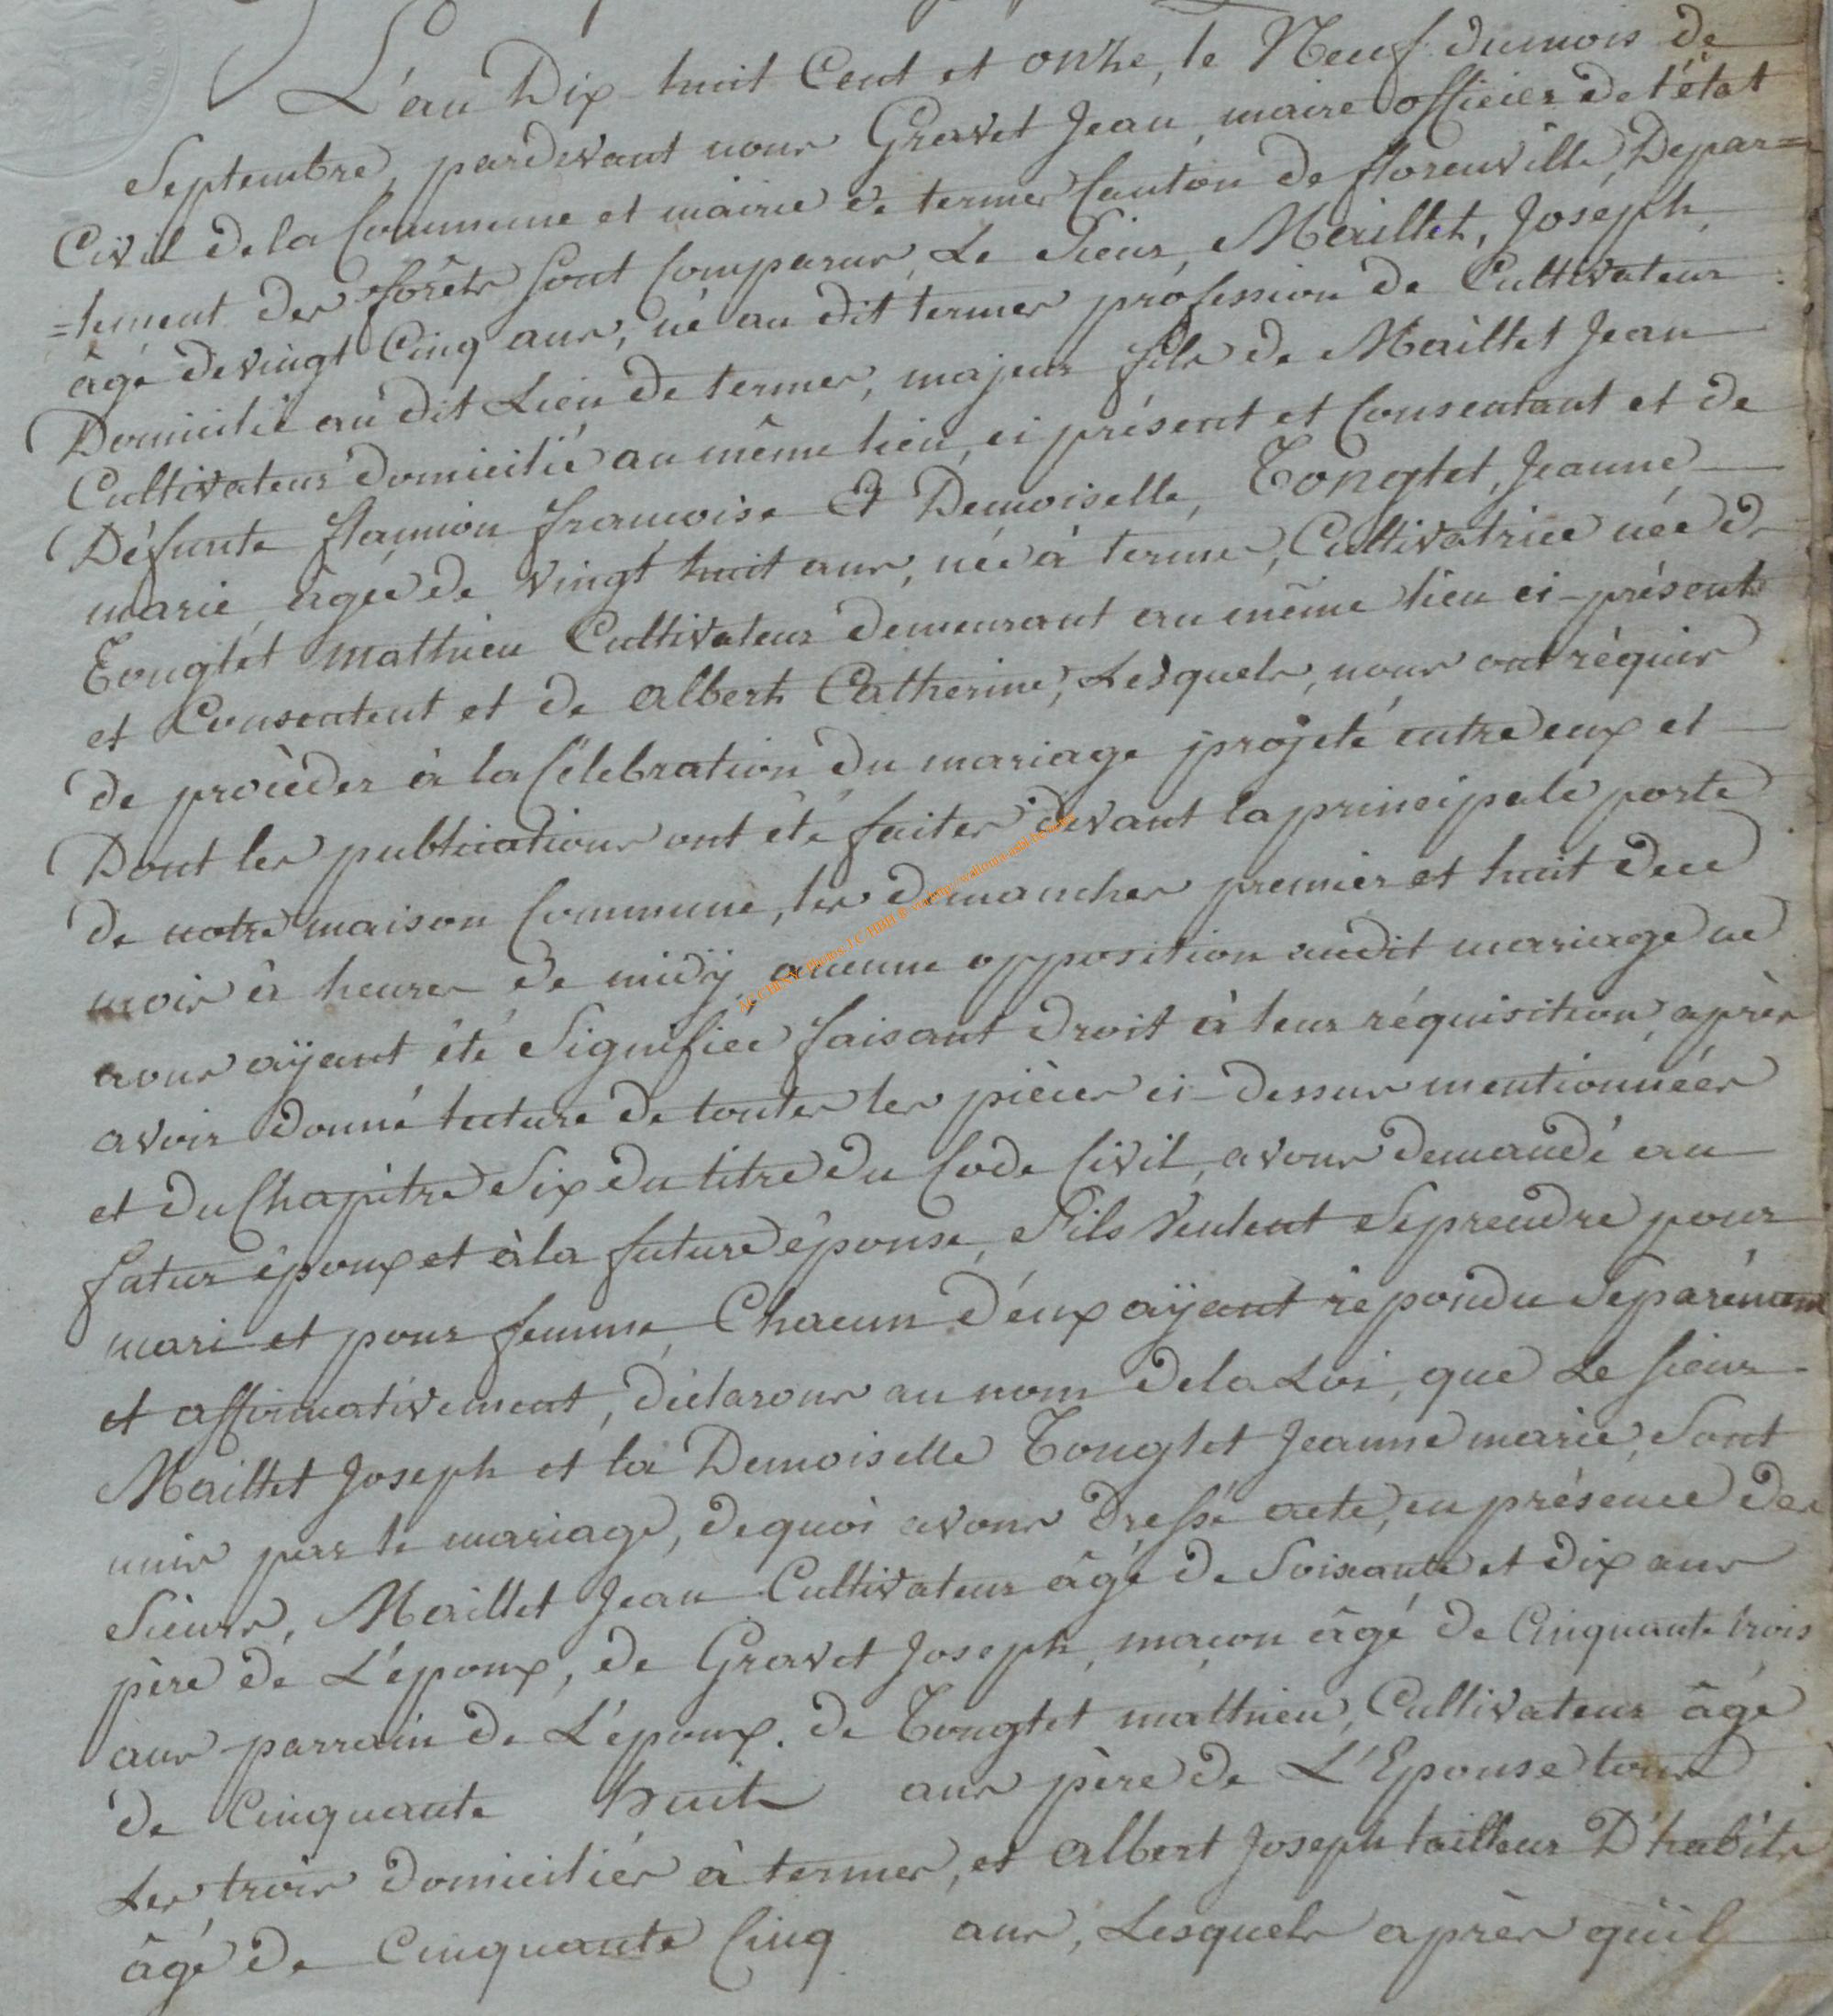 L'an Dix huit Cent et onze, le Neuf du mois de
Septembre, pardevant nous Gravet Jean, maire officier de l'état
Civil de la Commune et mairie de termes Canton de florenville, Depar=
=tement des forêts sont Comparus, Le Sieur, Maillet, Joseph,
âgé de vingt Cinq ans, né au dit termes profession de Cultivateur
Domicilié au dit Lieu de termes, majeur fils de Maillet Jean
Cultivateur domicilié au même lieu, ci présent et Consentant et de
Défunte flamion francoise Et Demoiselle, Tonglet, Jeanne
marie, âgée de vingt huit ans, née à terme, Cultivatrice née de
Tonglet mathieu Cultivateur demeurant au même lieu ci-présent
et Consentent et de albert Catherine, Lesquels, nous ont réquis
de procèder à la Célebration du mariage projeté entre eux et
Dont les publications ont été faites devant la principale porte
de notre maison Commune, les dimanches premier et huit de ce
mois à heures de midÿ, aucune opposition audit mariage ne
nous aÿant été Signifiée faisant droit à leur réquisition, après
avoir donné lecture de toutes les pièces ci-dessus mentionnées
et du Chapitre Six du titre du Code Civil, avons demandé au
futur époux et à la future épouse, S'ils veulent Se prendre pour
mari et pour femme, Chacun d'eux aÿant repondu Séparément
et affirmativement, déclarons au nom de la Loi, que Le Sieur
Maillet Joseph et la Demoiselle Tonglet Jeanne marie, Sont
unis par le mariage, de quoi avons dressé acte, en présence des
Sieurs, Maillet Jean Cultivateur âgé de Soixante et dix ans
père de L'époux, de Gravet Joseph, maçon âgé de Cinquante trois
ans parrain de L'époux. de Tonglet mathieu, Cultivateur âgé
de Cinquante huit ans père de L'Epouse tous
Les trois domiciliés à termes, et albert Joseph tailleur D'habits
âgé de Cinquante Cinq ans, Lesquels après qu'il